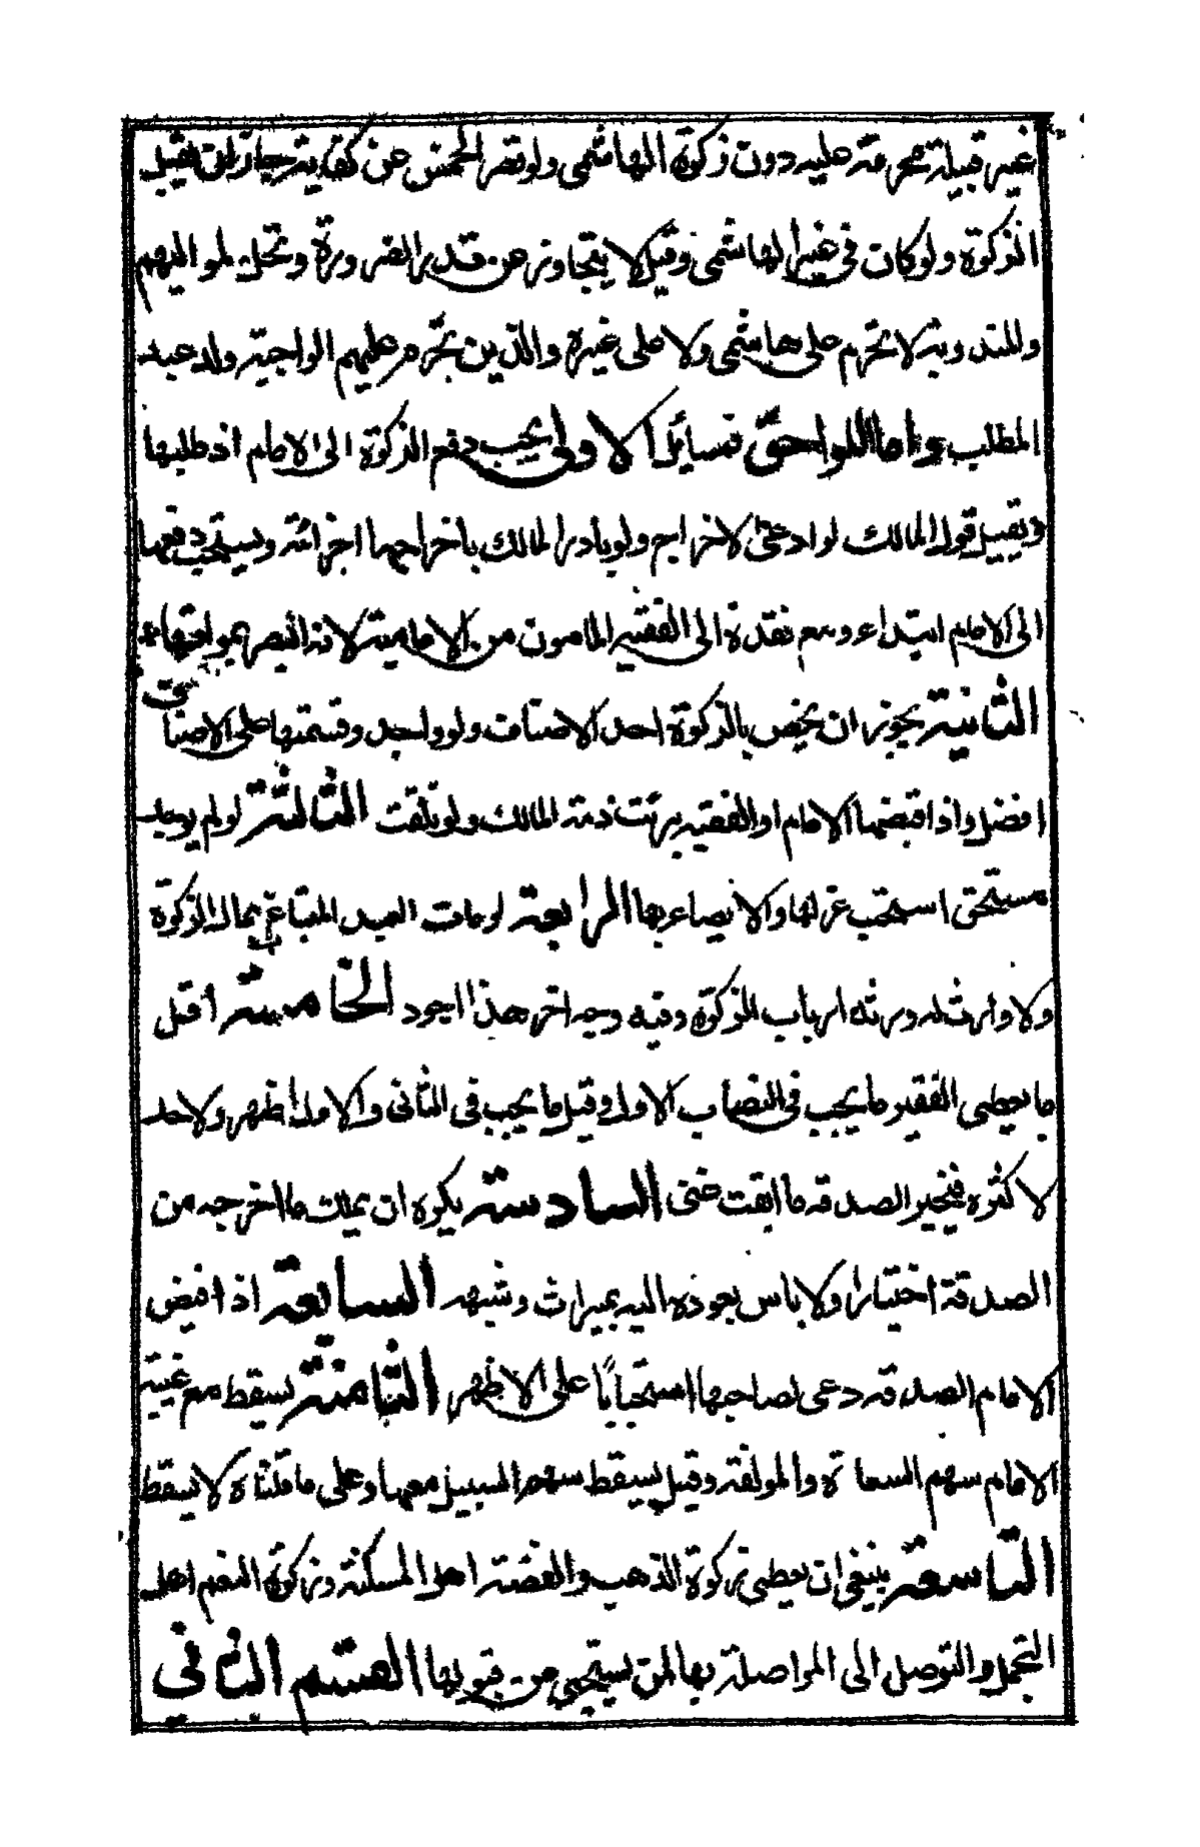 غير قبيلة محرمة عليه دون زكوة الهاشمى ولو قصر الخمس عن كفايته جاز ان يقبل
الزكوة ولو كانت فى غير الهاشمى وقيل لا يتجاوز عن قدر الضرورة وتحل لمواليهم
والمندوبة لا تحرم على هاشمى ولا على غيره والذين يحرم عليهم الواجبة ولد عبد
المطلب واما اللواحق فمسائل الاولى يجب دفع الزكوة الى الامام اذ طلبها
ويقبل قول المالك لو ادعى الاخراج ولو بادر المالك باخراجها اجزائته ويستحب دفعها
الى الامام ابتداء ومع فقده الى الفقيه المامون من الامامية لانه ابصر بمواقعها
الثانية يجوز ان يخص بالزكوة احد الاصناف ولو واحد وقسمتها على الاصناف
افضل واذا قبضها الامام او الفقيه برئت ذمة المالك ولو تلفت الثالثة لو لم يوجد
مستحق استحب عزلها والايصاء بها الرابعة لو مات العبد المبتاع بمال الزكوة
ولا وارث له ورثه ارباب الزكوة وفيه وجه اخر هذا اجود الخامسة اقل
ما يعطى الفقير ما يجب فى النصاب الاول وقيل ما يجب فى الثانى والاول اظهر ولا حد
لاكثره فخير الصدقه ما ابقت غنى السادسة يكره ان يملك ما اخرجه من
الصدقة اختيارا ولا باس بعوده اليه بميراث وشبهه السابعة اذا اقبض
الامام الصدقه دعى لصاحبها استحبابًا على الاظهر الثامنة يسقط مع غيبة
الامام سهم السعاة والمولفة وقيل يسقط سهم السبيل معهما وعلى ما قلناه لا يسقط
التاسعة ينبغى ان يعطى زكوة الذهب والفضة اهل المسكنة وزكوة النعم اهل
التجمل والتوصل الى المواصلة بها لمن يستحيى من قبولها القسم الثانى